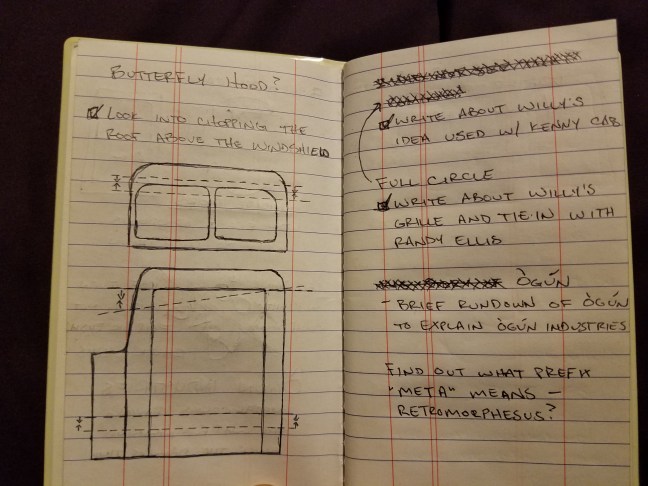 BUTTERFLY HOOD?
LOOK INTO CHOPPING THE
ROOF ABOVE THE WINDSHIELD
WRITE ABOUT WILLY'S
IDEA USED W/ KENNY CAB
FULL CIRCLE
WRITE ABOUT WILLY'S
GRILLE AND TIE-IN WITH
RANDY ELLIS
ÒGÚN
- BRIEF RUNDOWN OF ÒGÚN
TO EXPLAIN ÒGÚN INDUSTRIES
FIND OUT WHAT PREFIX
"META" MEANS -
RETROMORPHESUS?